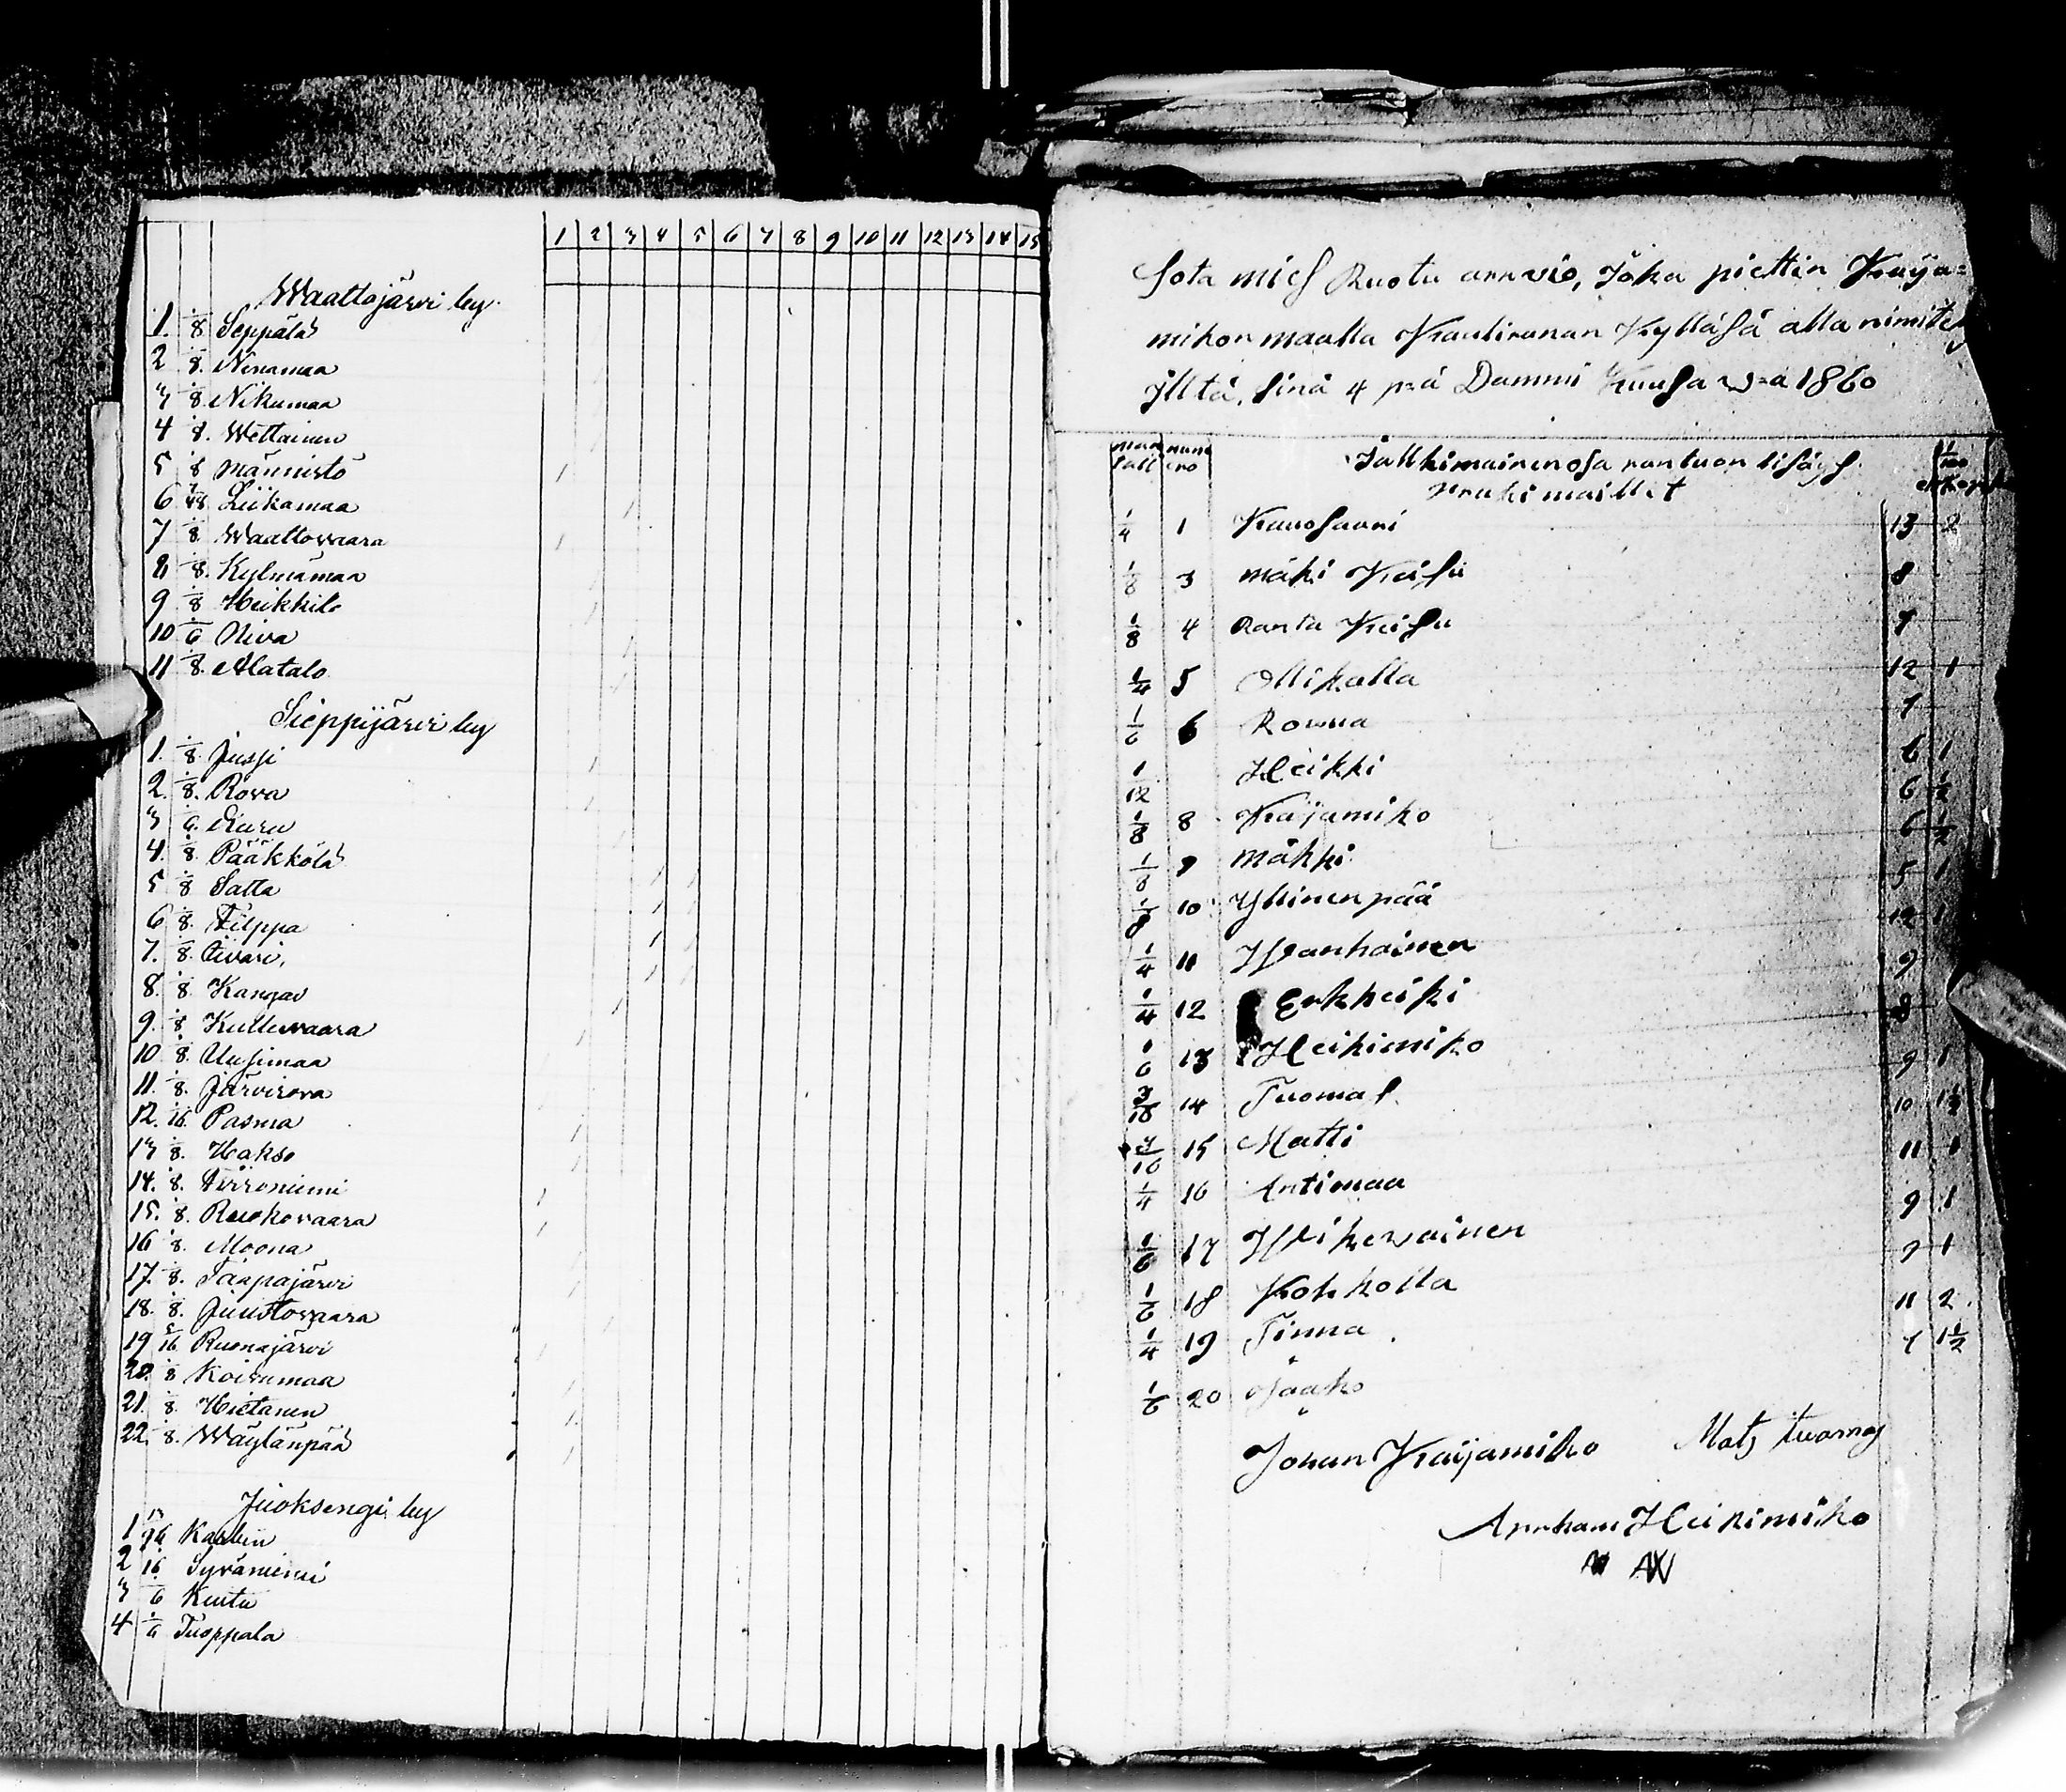 1 2 3 4 5 6 7 8 9 10 11 12 13 14 15
Waattojärvi by
1. 1/8 Seppälä
2 1/8. Niranmaa
3 1/8. Nikumaa
4 1/8. Wettainen
5 1/8 männistö
6 7/48 Liikamaa
7 1/8 Waattovaara
8 1/8. Kylmämaa
9 1/8 Heikkilä
10 1/6 Niva
11 1/8. Alatalo
Sieppijärvi by
1. 1/8. Jussi
2. 1/8. Rova
3 1/6. Kuru
4. 1/8. Pääkkölä
5 1/8 Satta
6 1/8. Filppa
7. 1/8. Eivari,
8. 1/8 Kangas
9. 1/8 Kulluvaara
10 1/8. Uusimaa
11. 1/8. Järvirova
12. 1/16. Pasma
13 1/8. Hakso
14. 1/8. Törröniemi
15. 1/8. Ruokovaara
16 1/8. Moona
17. 1/8. Taapajärvi
18. 1/8. Juustovaara
19 5/16 Ruonajärvi
20. 1/8 Koirumaa
21. 1/8. Hietanen
22. 1/8. Wäylänpää
Juoksengi by
1 Kaulin
2 1/16. Syväniemi
3 1/6 Kuutu
4 1/6 Tuoppala
Sota mieS Ruotu arrvio, Joka piettin Kaÿa=
mikon maalla Kauliranan Kylläsä alla
ÿlltä, Sinä 4 p:ä Dammi Kuusa w:a 1860
Jälkimäinen osa rantuon lisäys
1/4 1 Kauosaari 13 2
1/8 3 mäki Keisu 8
1/8 4 Ranta Keisu 7
1/4 5 Ollikalla 12 1
1/6 6 Rowua 7
1/12 Heikki 6 1
1/8 8 Käÿamiko 6 1/2
1/8 9 mäkki 6 1/2
1/8 10 Yllinenpää 5 1
1/4 11 Wanhainen 12 1
1/4 12 Erkheiki 9
1/6 13 Heikimiko 8
3/16 14 Tuomas 9 1
3/16 15 Matti 10 1 1/2
1/4 16 Antimaa 11 1
1/6 17 Wikewainen 9 1
1/6 18 Kokkolla 9 1
1/4 19 Tinna. 11 2
1/6 20 Jaako 7 1 1/2
Johan Kaÿamiko Mats tuomas
Abraham Heikimiko
AW